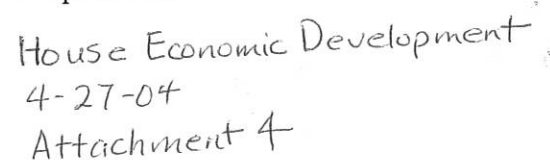 House Economic Development
4-27-04
Attachment 4